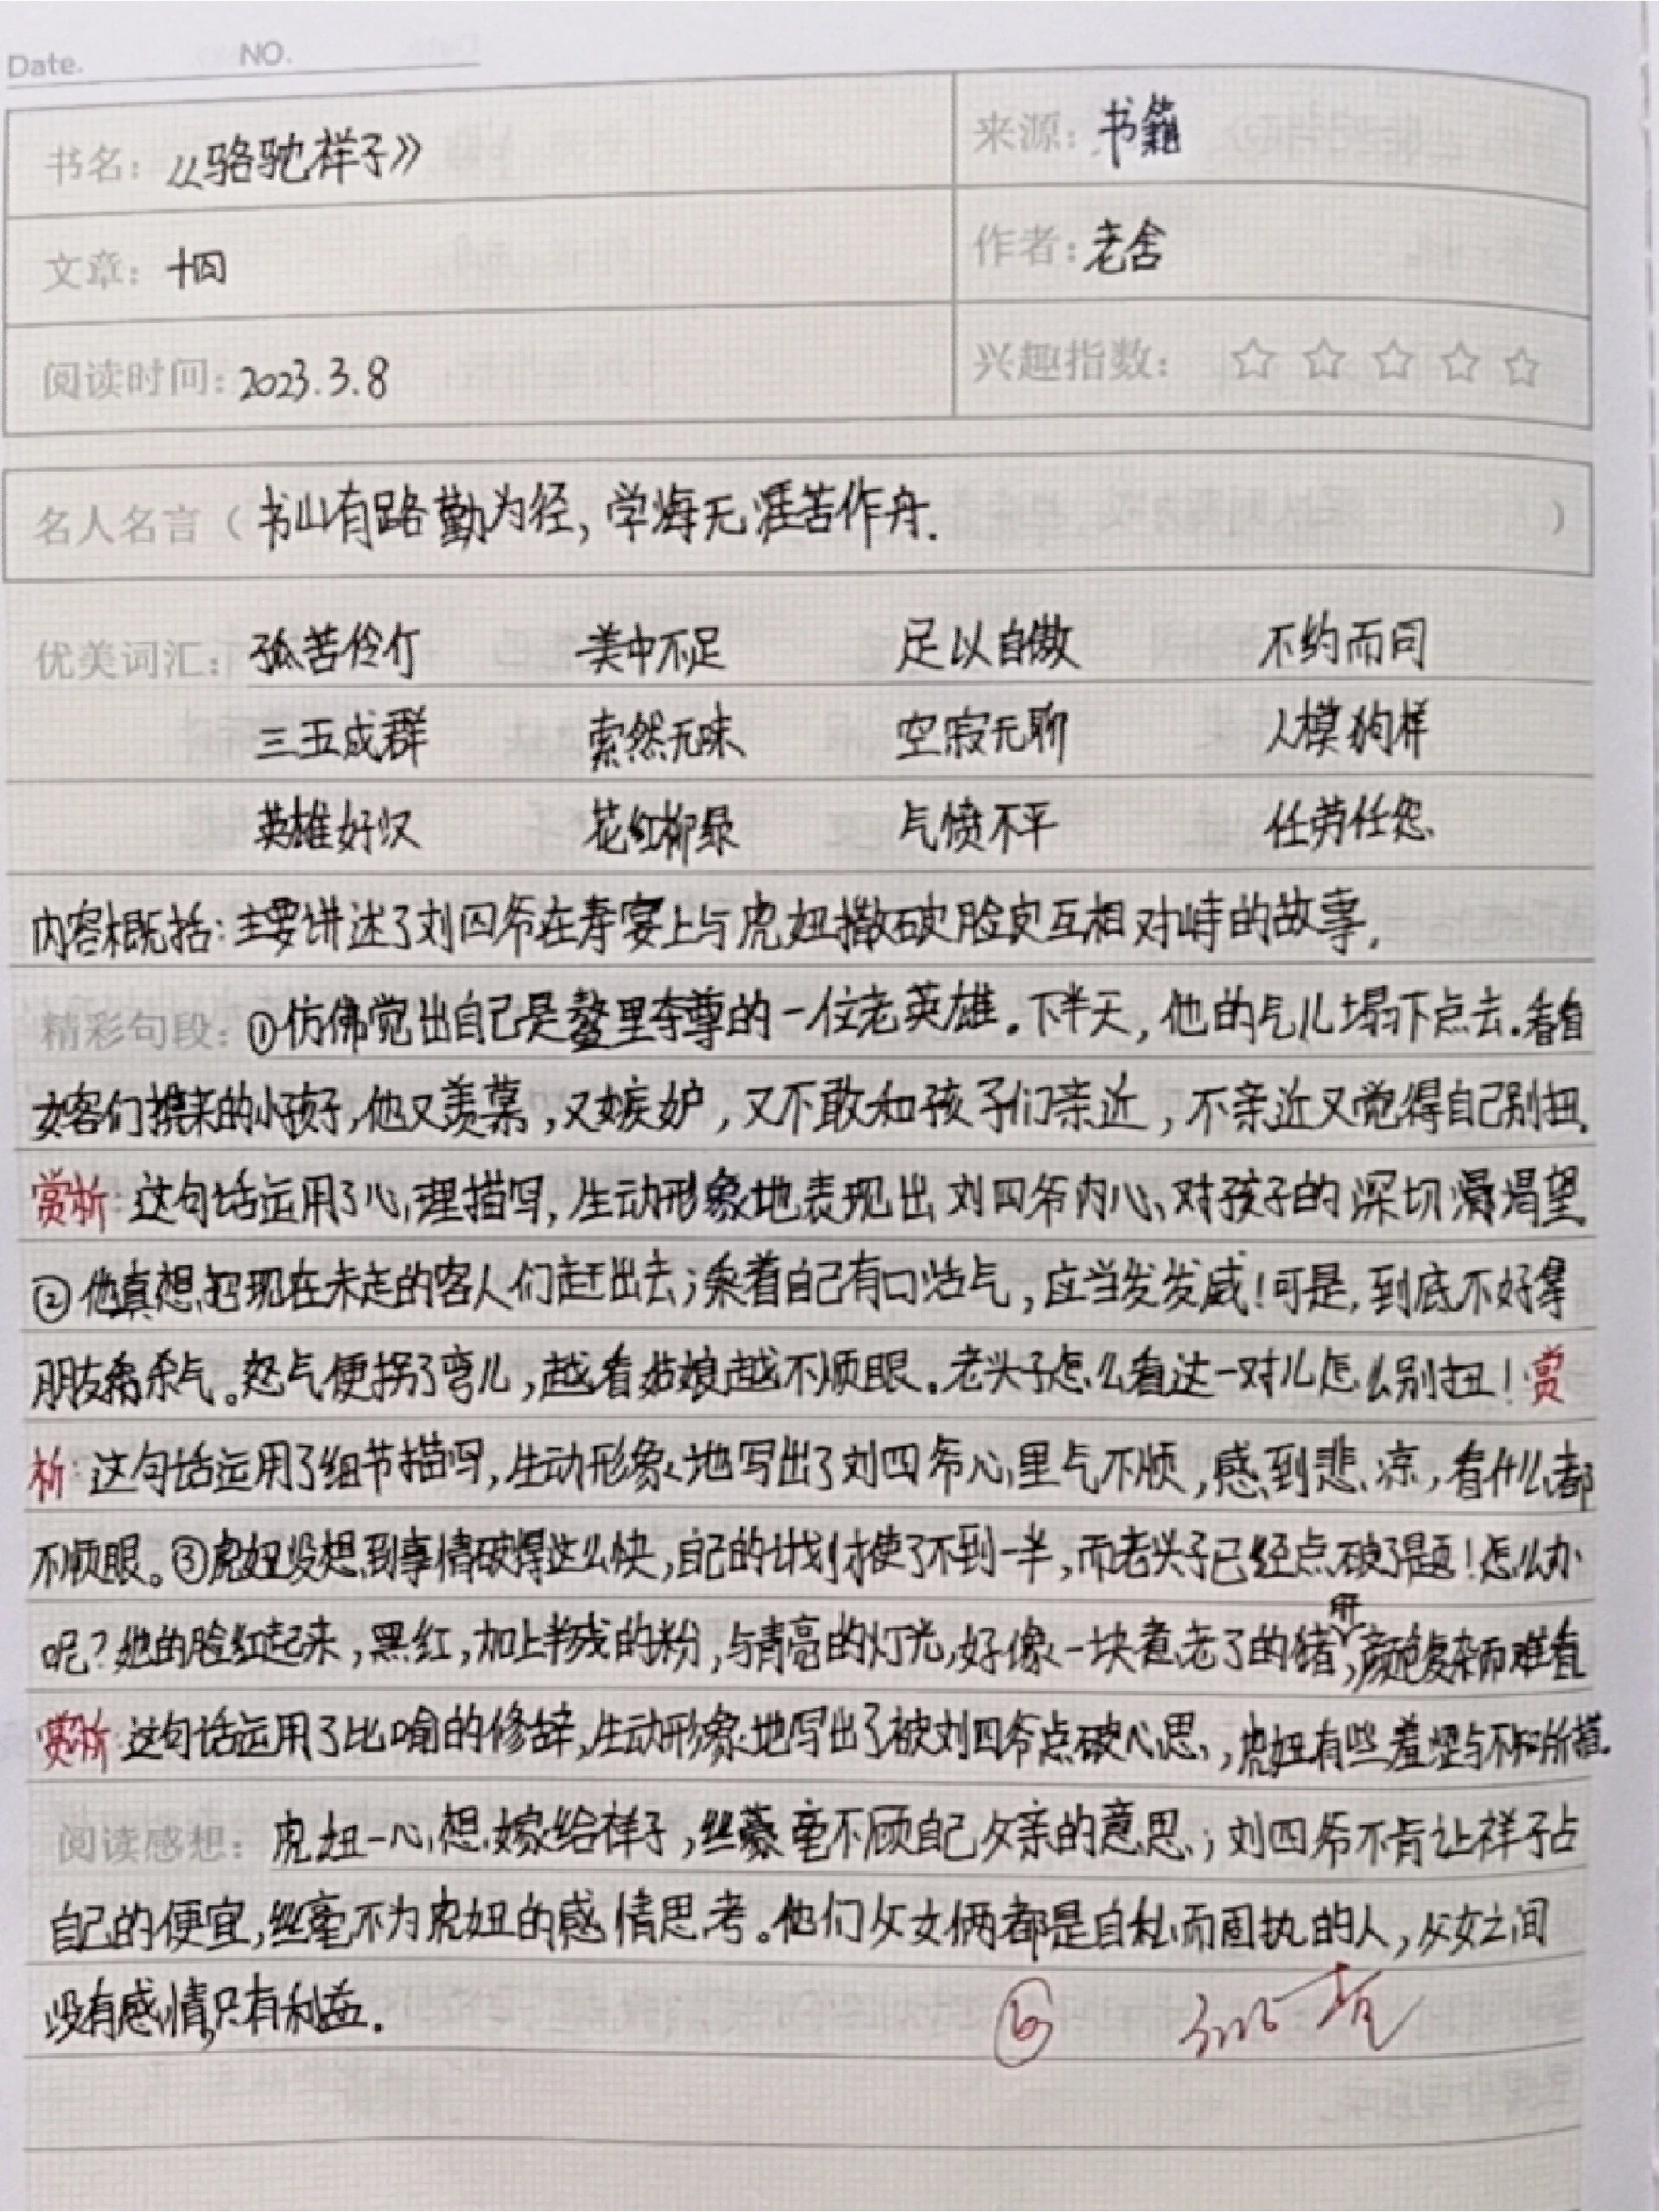 Date. NO.
书名：《骆驼祥子》 来源：书籍
文章：十四 作者：老舍
阅读时间：2023.3.8 兴趣指数：☆☆☆☆☆
名人名言（书山有路勤为径，学海无涯苦作舟.）
优美词汇：孤苦伶仃 美中不足 足以自傲 不约而同
三五成群 索然无味 空寂无聊 人模狗样
英雄好汉 花红柳绿 气愤不平 任劳任怨
内容概括：主要讲述了刘四爷在寿宴上与虎妞撕破脸皮互相对峙的故事.
精彩句段：①仿佛觉出自己是鳌里夺尊的一位老英雄。下半天，他的气儿塌下点去.看看
女客们携来的小孩子，他又羡慕，又嫉妒，又不敢和孩子们亲近，不亲近又觉得自己别扭.
赏析：这句话运用了心理描写，生动形象地表现出刘四爷内心对孩子的深切渴望
②他真想把现在未走的客人们赶出去；乘着自己有口活气，应当发发威！可是，到底不好拿
朋友杀气。怒气便拐了弯儿，越看姑娘越不顺眼。老头子怎么看这一对儿怎么别扭！赏
析：这句话运用了细节描写，生动形象地写出了刘四爷心里气不顺，感到悲凉，看什么都
不顺眼。③虎妞没想到事情破得这么快，自己的计划才使了不到一半，而老头子已经点破了题！怎么办
呢？她的脸红起来，黑红，加上半残的粉，与青亮的灯光，好像一块煮老了的猪肝，颜色复杂而难看
赏析：这句话运用了比喻的修辞，生动形象地写出了被刘四爷点破心思，虎妞有些羞涩与不知所措.
阅读感想：虎妞一心想嫁给祥子，丝毫不顾自己父亲的意思；刘四爷不肯让祥子占
自己的便宜，丝毫不为虎妞的感情思考。他们父女俩都是自私而固执的人，父女之间
没有感情，只有利益.